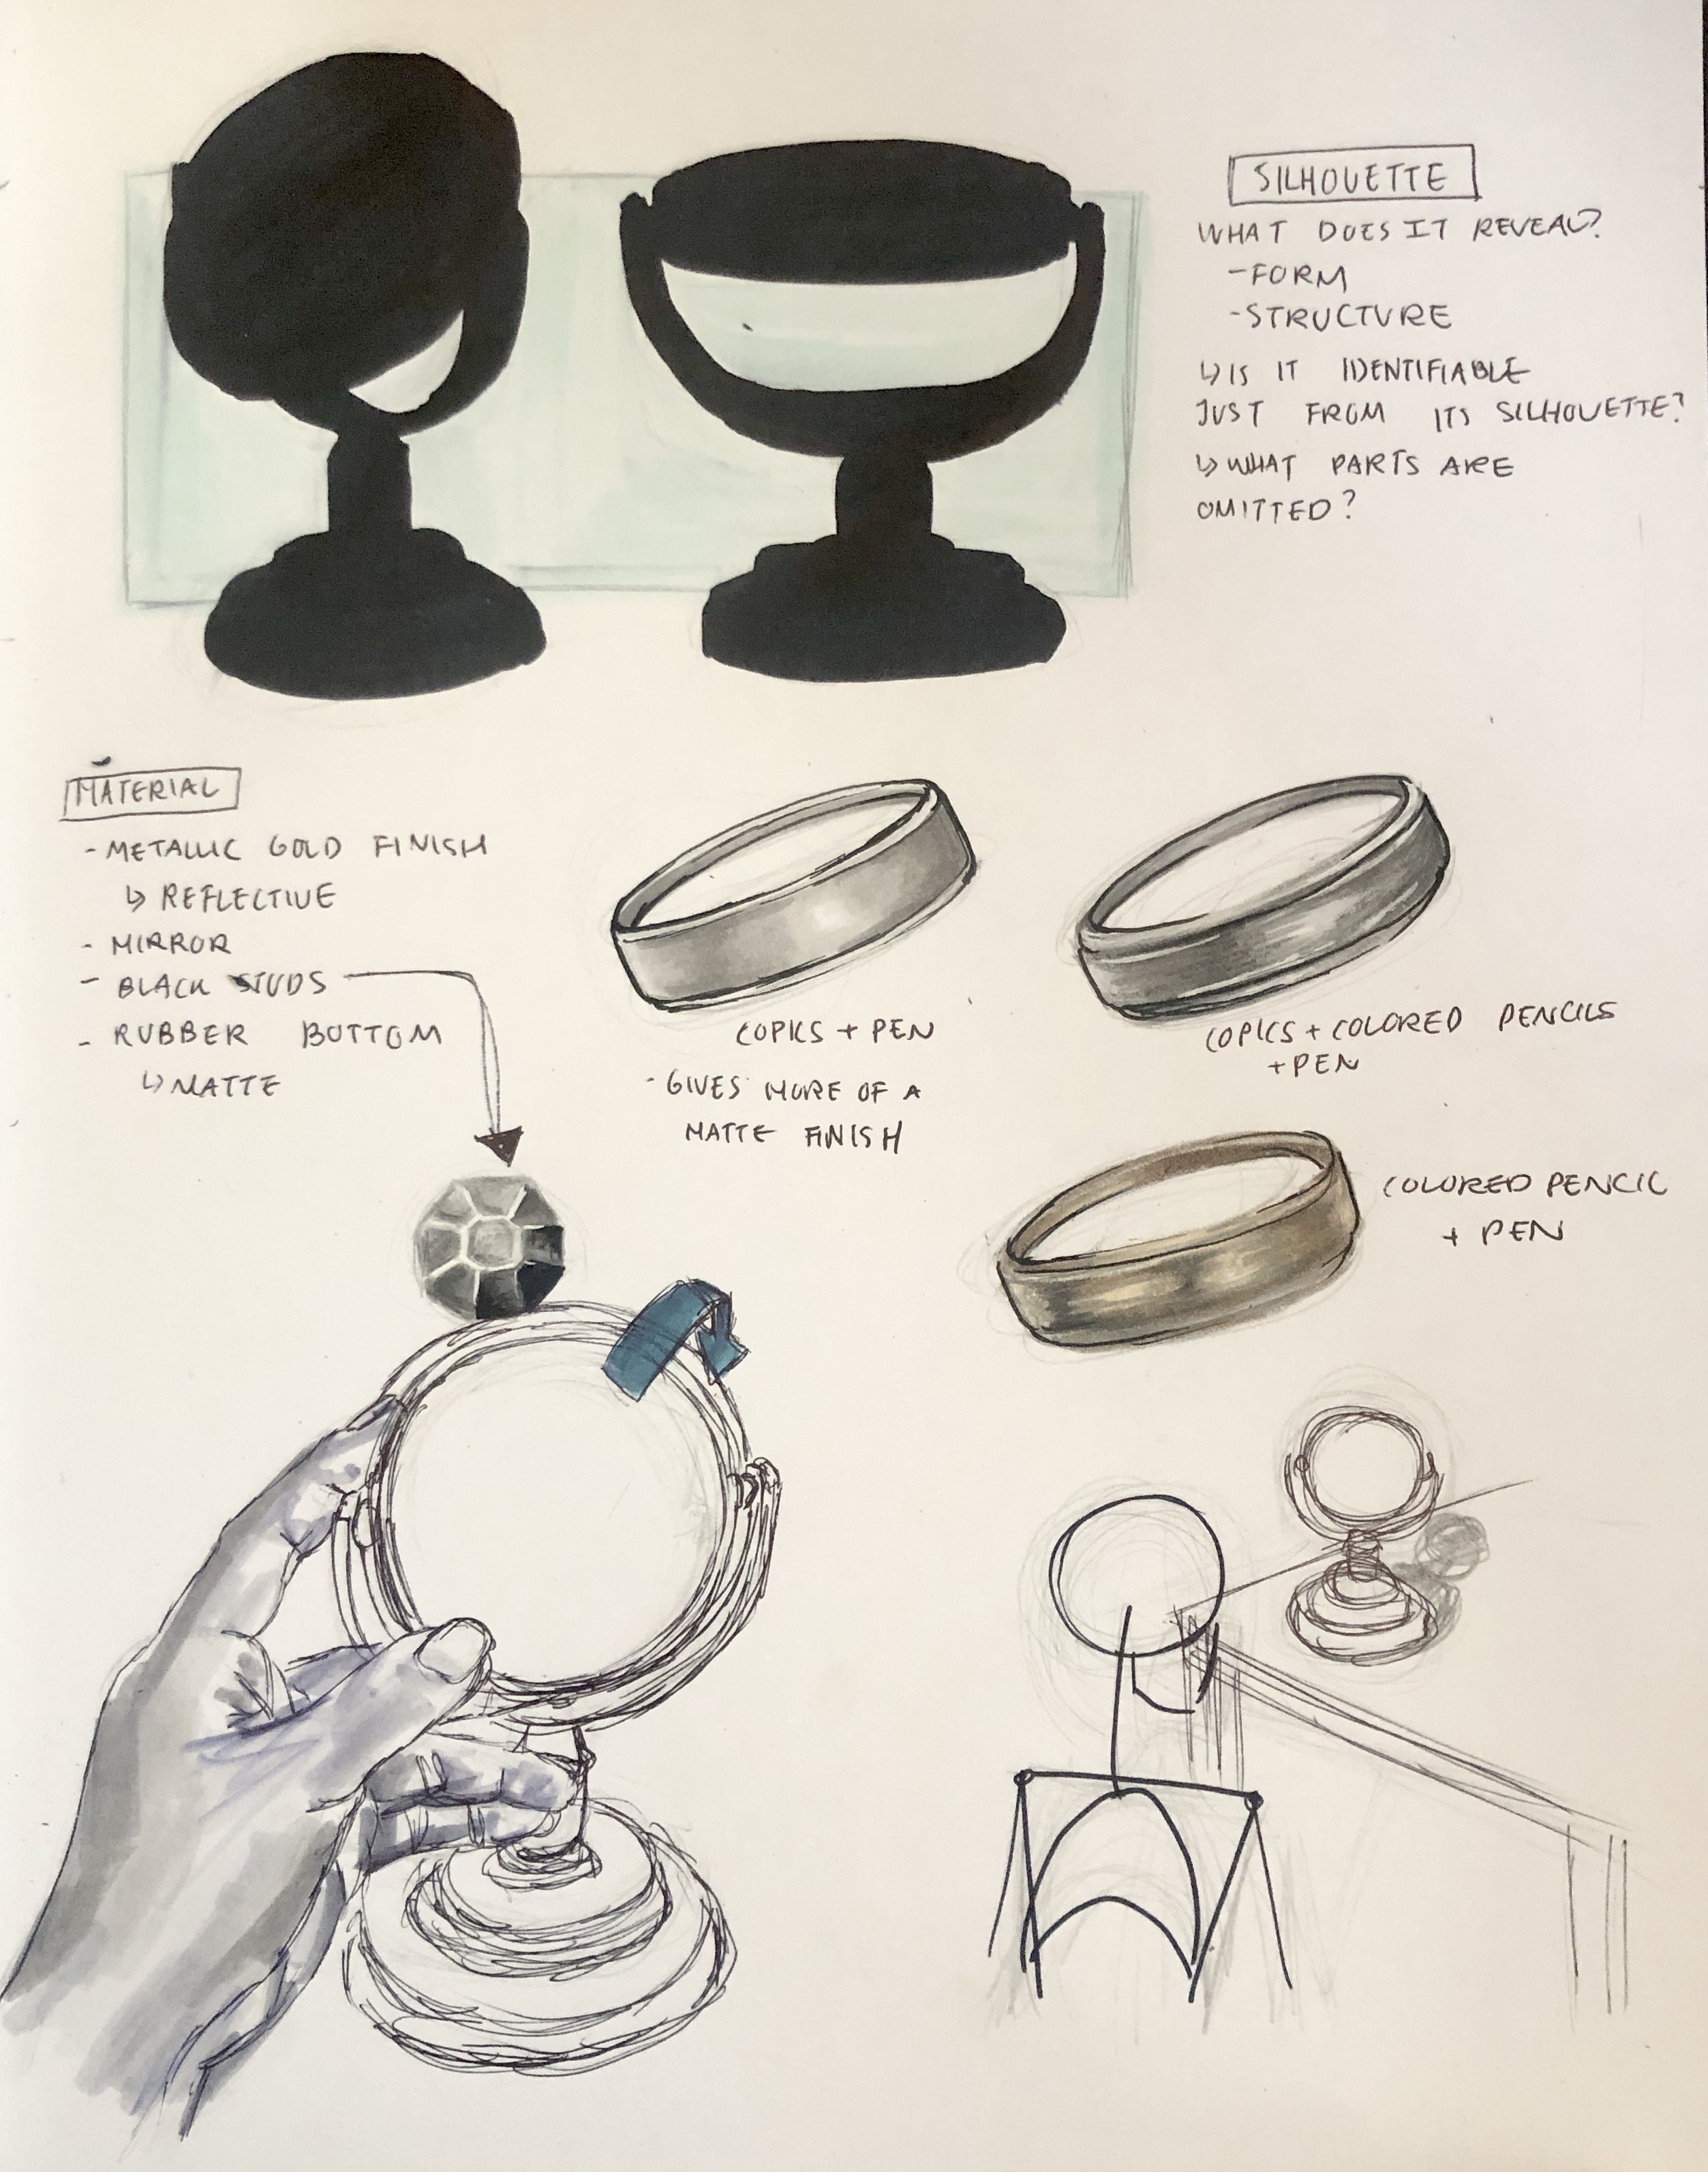 SILHOUETTE
WHAT DOES IT REVEAL?
-FORM
-STRUCTURE
↳IS IT IDENTIFIABLE
JUST FROM ITS SILHOUETTE?
↳WHAT PARTS ARE
OMITTED?
MATERIAL
- METALLIC GOLD FINISH
↳ REFLECTIVE
- MIRROR
- BLACK STUDS
- RUBBER BOTTOM
↳MATTE
COPICS + PEN
- GIVES MORE OF A
MATTE FINISH
COPICS + COLORED PENCILS
+ PEN
COLORED PENCIL
+ PEN